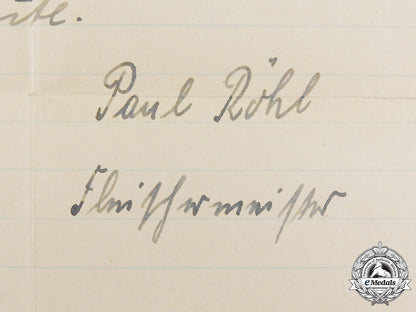 Paul Röhl
Fleischermeister
eMedals